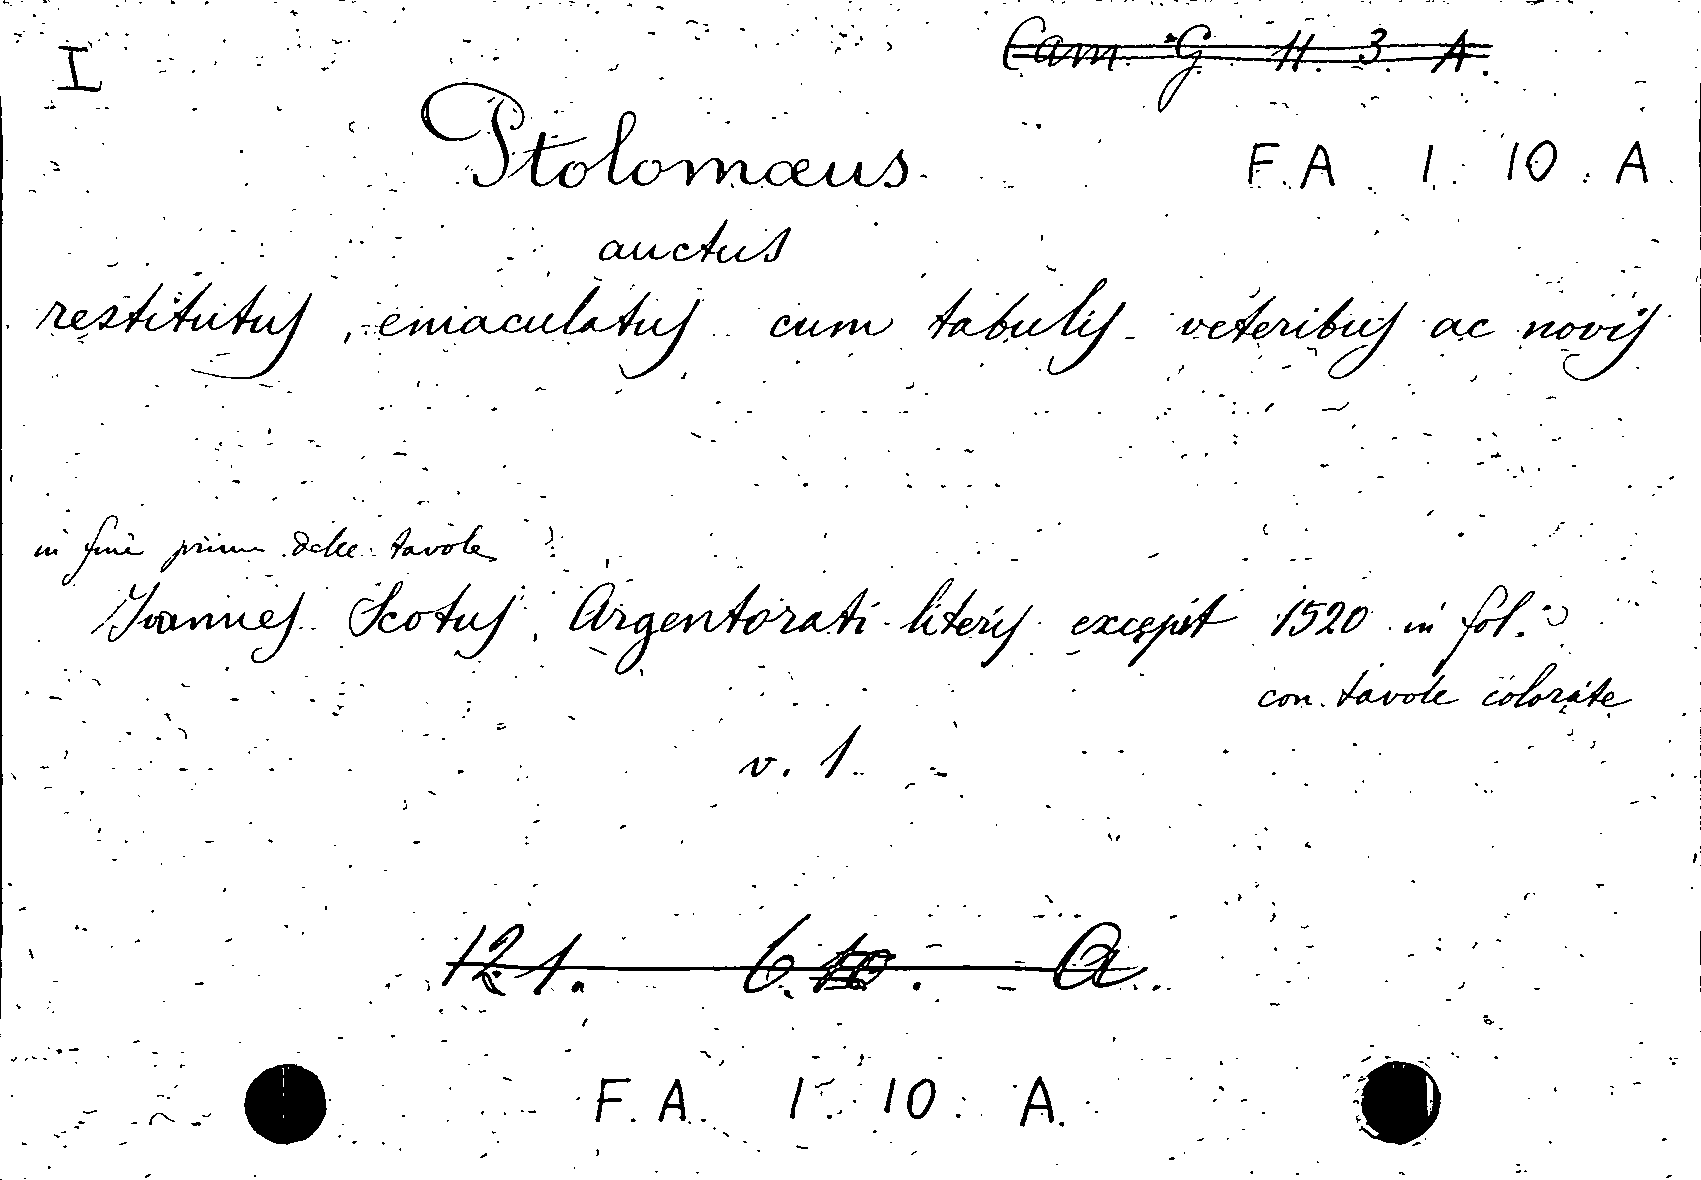 I
Cam. G. 11. 3. A.
Ptolomæus
F. A. 1. 10. A.
auctus
restitutus, emaculatus cum tabulis veteribus ac novis
in fine prima delle tavole
Joannes Scotus Argentorati literis excepit 1520 in fol.º
con tavole colorate
v. 1.
121. 6. 10. A.
F. A. 1. 10. A.